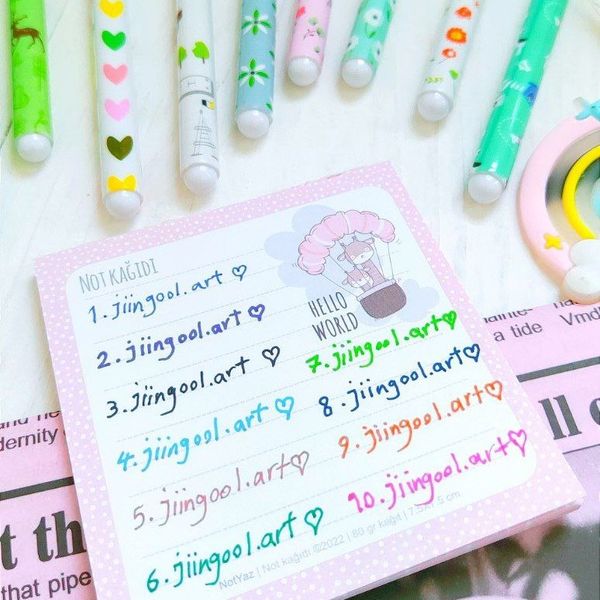 NOT KAĞIDI
1. jiingool.art ♡
2. jiingool.art ♡
3. jiingool.art ♡
4. jiingool.art ♡
5. jiingool.art ♡
6. jiingool.art ♡
HELLO
WORLD
7. jiingool.art ♡
8. jiingool.art ♡
9. jiingool.art ♡
10. jiingool.art ♡
NotYaz | Not kağıdı ©2022 | 80 gr kağıt | 7.5
5 cm
dernity
t th
that pipe
a tide
Vmd
ll